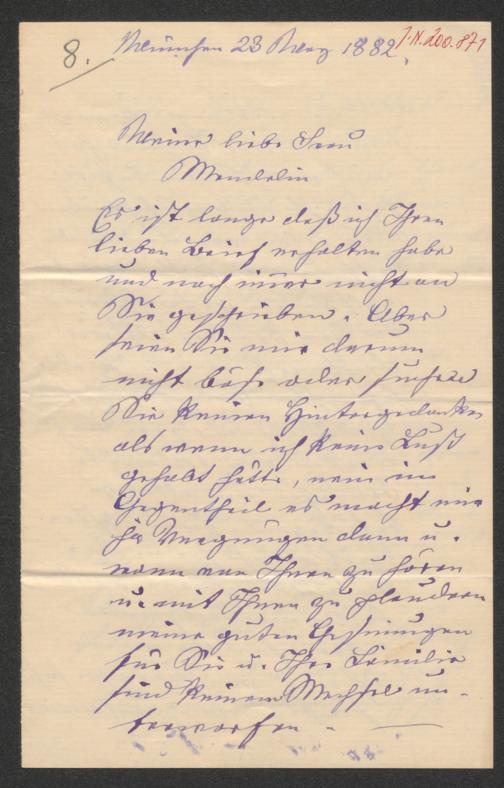 8. München 23 März 1882. J.N. 200.871
Meine liebe Frau
Wendelin
Es ist lange daß ich Ihren
lieben Brief erhalten habe
und noch im̅er nicht an
Sie geschrieben. Aber
seien Sie mir darum
nicht böse oder suchen
Sie keinen Hintergedanken
als wenn ich keine Lust
gehabt hätte, nein im
Gegentheil es macht mir
ja Vergnügen dann u.
wann von Ihnen zu hören
u. mit Ihnen zu plaudern
meine guten Gesinnungen
für Sie u. Ihre Familie
sind keinem Wechsel un-
terworfen. —